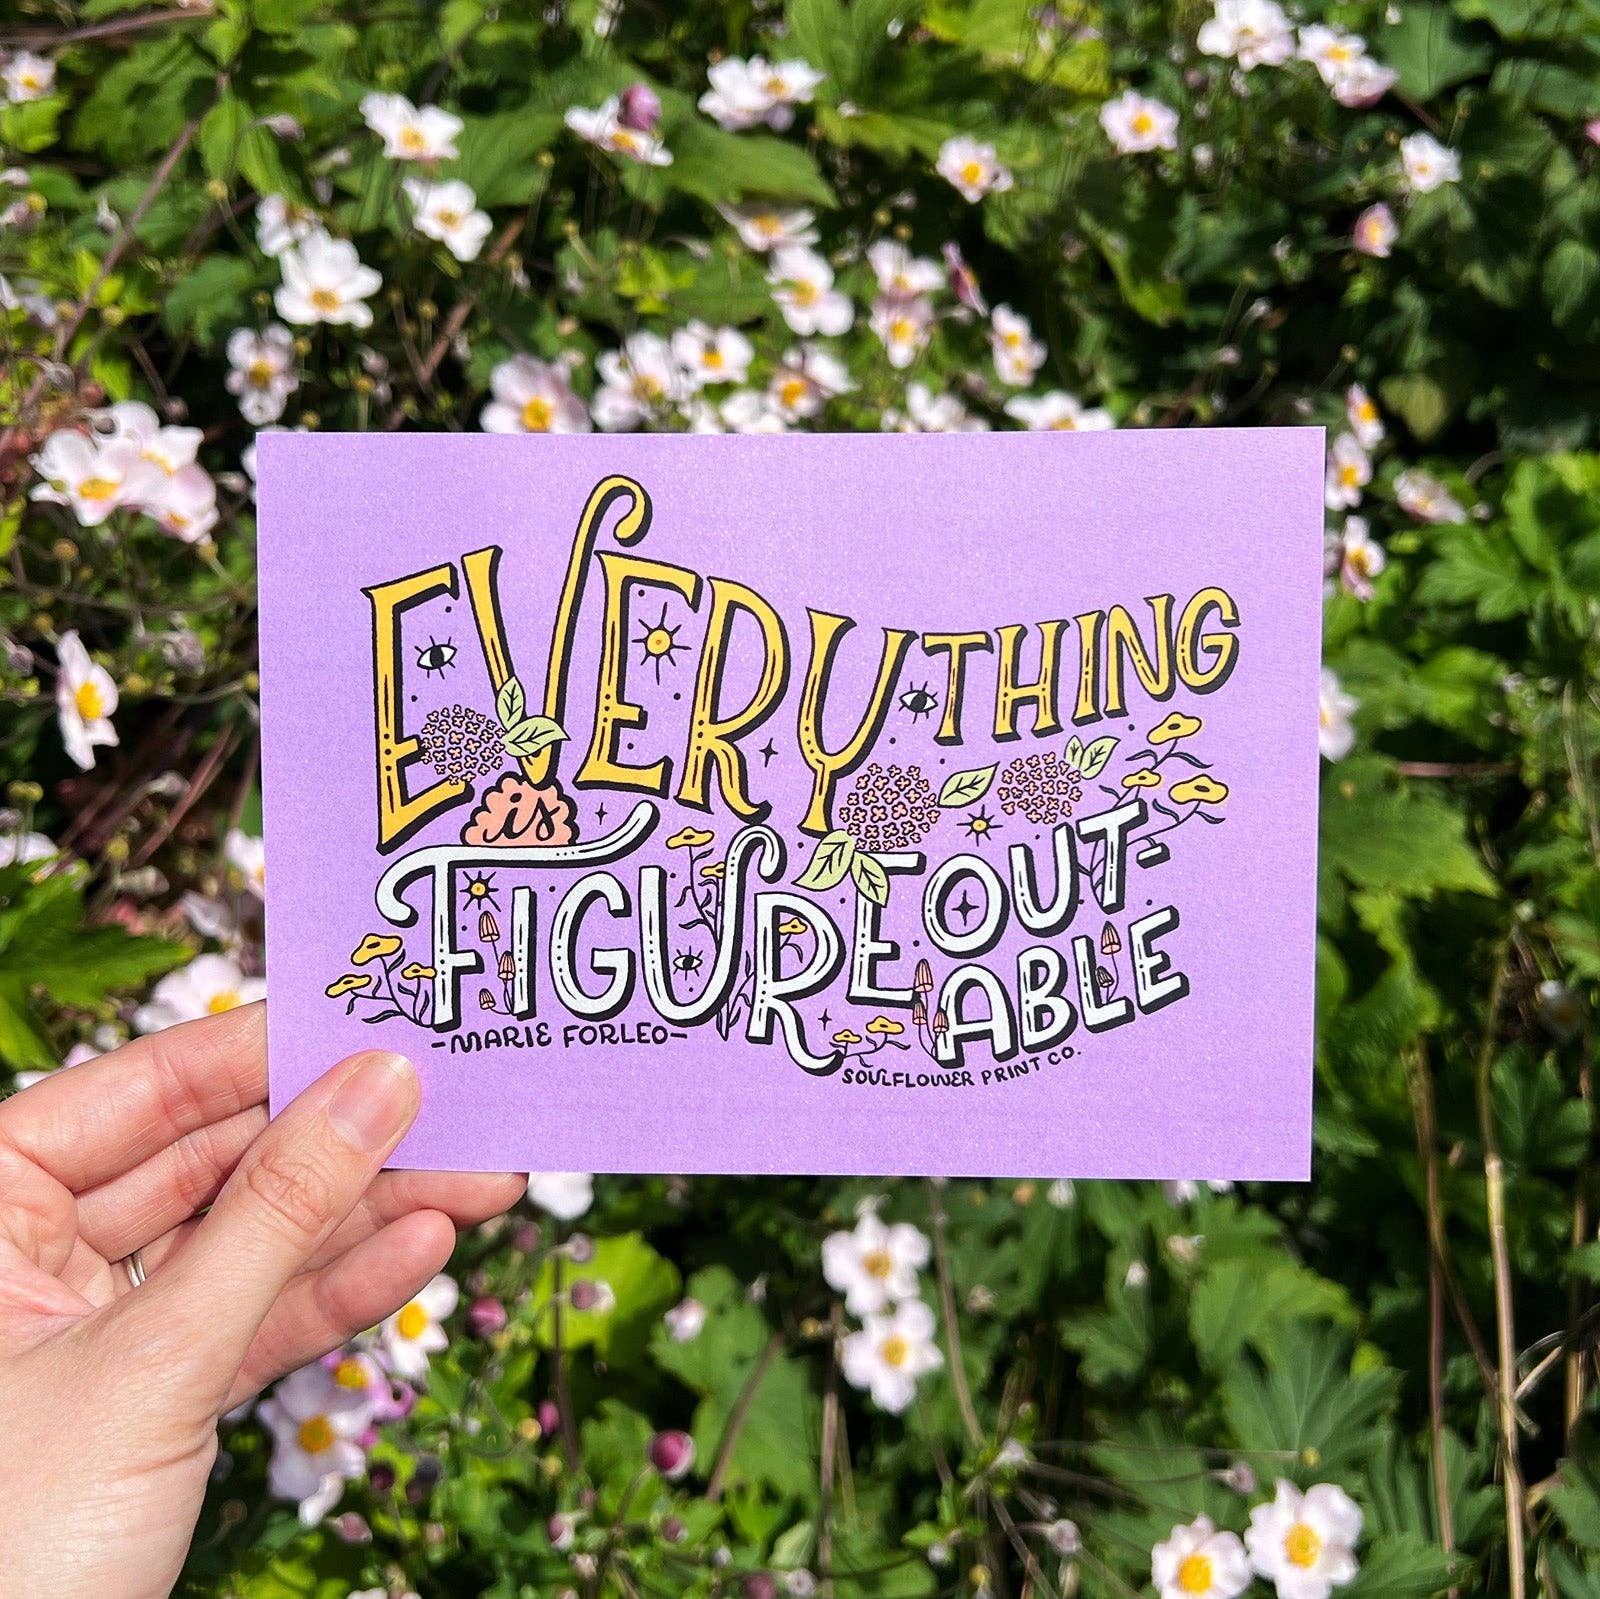 EVERYTHING
is
FIGUREOUT-
ABLE
-MARIE FORLEO-
SOULFLOWER PRINT CO.